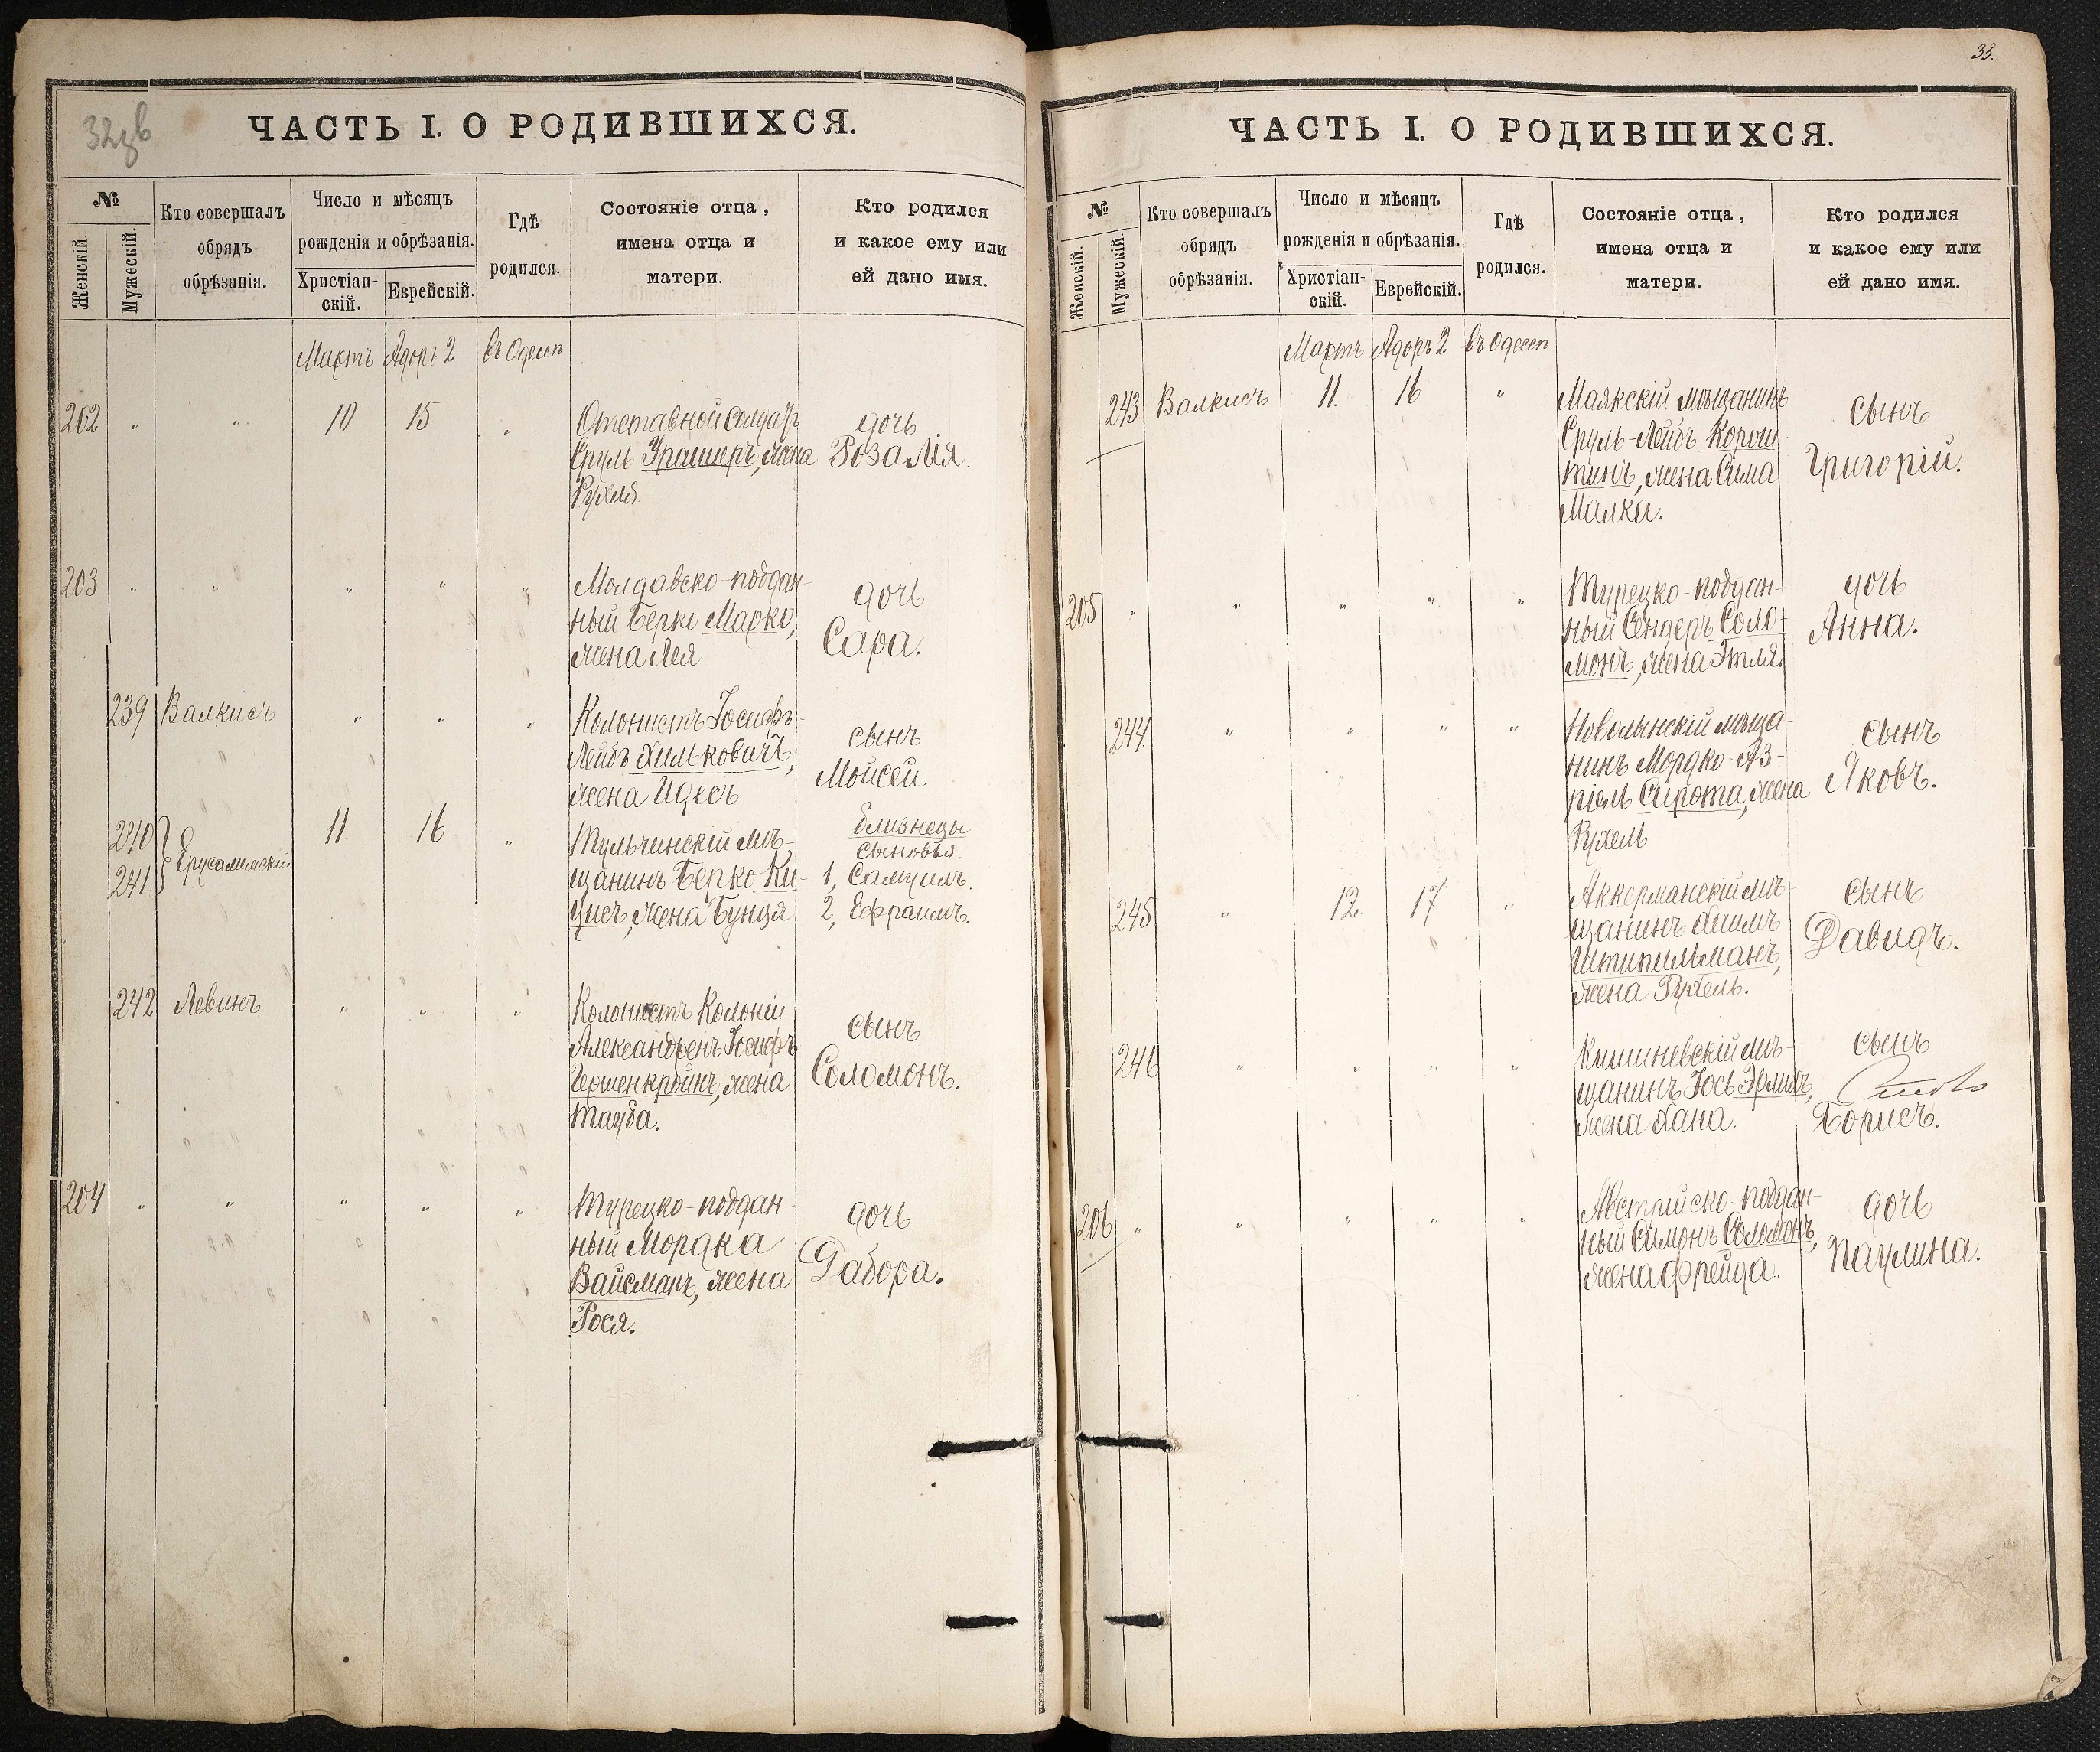 ЧАСТЬ I. О РОДИВШИХСЯ.
№
Женскій.
Мужескій.
Кто совершалъ
обрядъ
обрѣзанія.
Число и мѣсяцъ
рожденія и обрѣзанія.
Христіан-
скій.
Еврейскій.
Гдѣ
родился.
Состояніе отца,
имена отца и
матери.
Кто родился
и какое ему или
ей дано имя.
Мартъ Адоръ 2 въ Одессѣ
202 " " 10 15 "
Отставной Солдатъ
Сруль жена
Рухля
дочь
Розалія.
203 " " " " "
Молдавско-поддан-
ный Берко Марко,
жена Лея
дочь
Сара.
239 Валкисъ " " "
Колонистъ Іосифъ-
Лейбъ Хилькович,
жена Идесъ
сынъ
Мойсей.
240
241
Ерусалимскій
11. 16 "
Тульчинскій мѣ-
щанинъ Берко Ки-
цисъ, жена Бунця
близнецы
сыновья.
1, Самуилъ.
2, Ефраимъ.
242 Левинъ " " "
Колонистъ Колоніи
Іосифъ
Гершенкройнъ, жена
Тауба.
сынъ
Соломонъ.
204 " " " " "
Турецко-поддан-
ный Мордка
Вайсманъ, жена
Рося.
дочь
Дабора.
33.
ЧАСТЬ I. О РОДИВШИХСЯ.
№
Женскій.
Мужескій.
Кто совершалъ
обрядъ
обрѣзанія.
Число и мѣсяцъ
рожденія и обрѣзанія.
Христіан-
скій.
Еврейскій.
Гдѣ
родился.
Состояніе отца,
имена отца и
матери.
Кто родился
и какое ему или
ей дано имя.
Мартъ Адоръ 2 въ Одессѣ
243. Валкисъ 11. 16 "
Маякскій мѣщанинъ
Сруль-Лейбъ
жена Сима
Малка.
сынъ
Григорій.
205 " " " " "
Турецко-поддан-
ный Сендеръ Соло-
монъ, жена Этля.
дочь
Анна.
244. " " " "
мѣща-
нинъ Мордко-Аз-
ріель Сирота, жена
Рухель
сынъ
Яковъ.
245 " 12. 17 "
Аккерманскій мѣ-
щанинъ Хаимъ
Штипельманъ,
жена Рухель.
сынъ
Давидъ.
246 " " " "
Кишиневскій мѣ-
щанинъ Іось Эрлихъ,
жена Хана.
сынъ
Борисъ.
206 " " " " "
Австрийско-поддан-
ный Симонъ Соломонъ,
жена Фрейда.
дочь
Паулина.